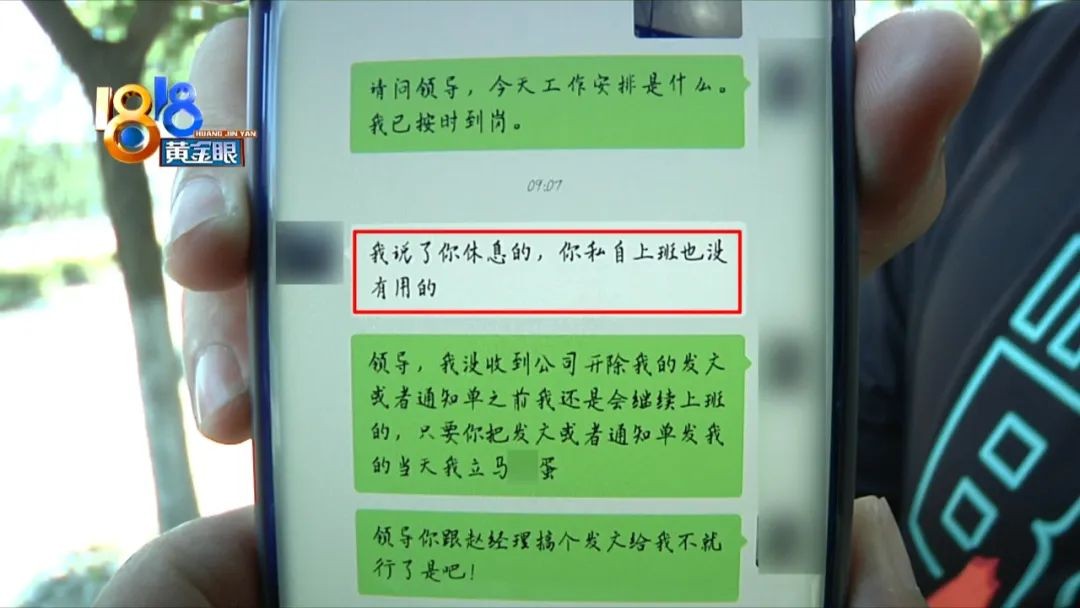 1818
HUANG JIN YAN
黄金眼
请问领导，今天工作安排是什么。
我已按时到岗。
09:07
我说了你休息的，你私自上班也没
有用的
领导，我没收到公司开除我的发文
或者通知单之前我还是会继续上班
的，只要你把发文或者通知单发我
的当天我立马 蛋
领导你跟赵经理搞个发文给我不就
行了是吧！